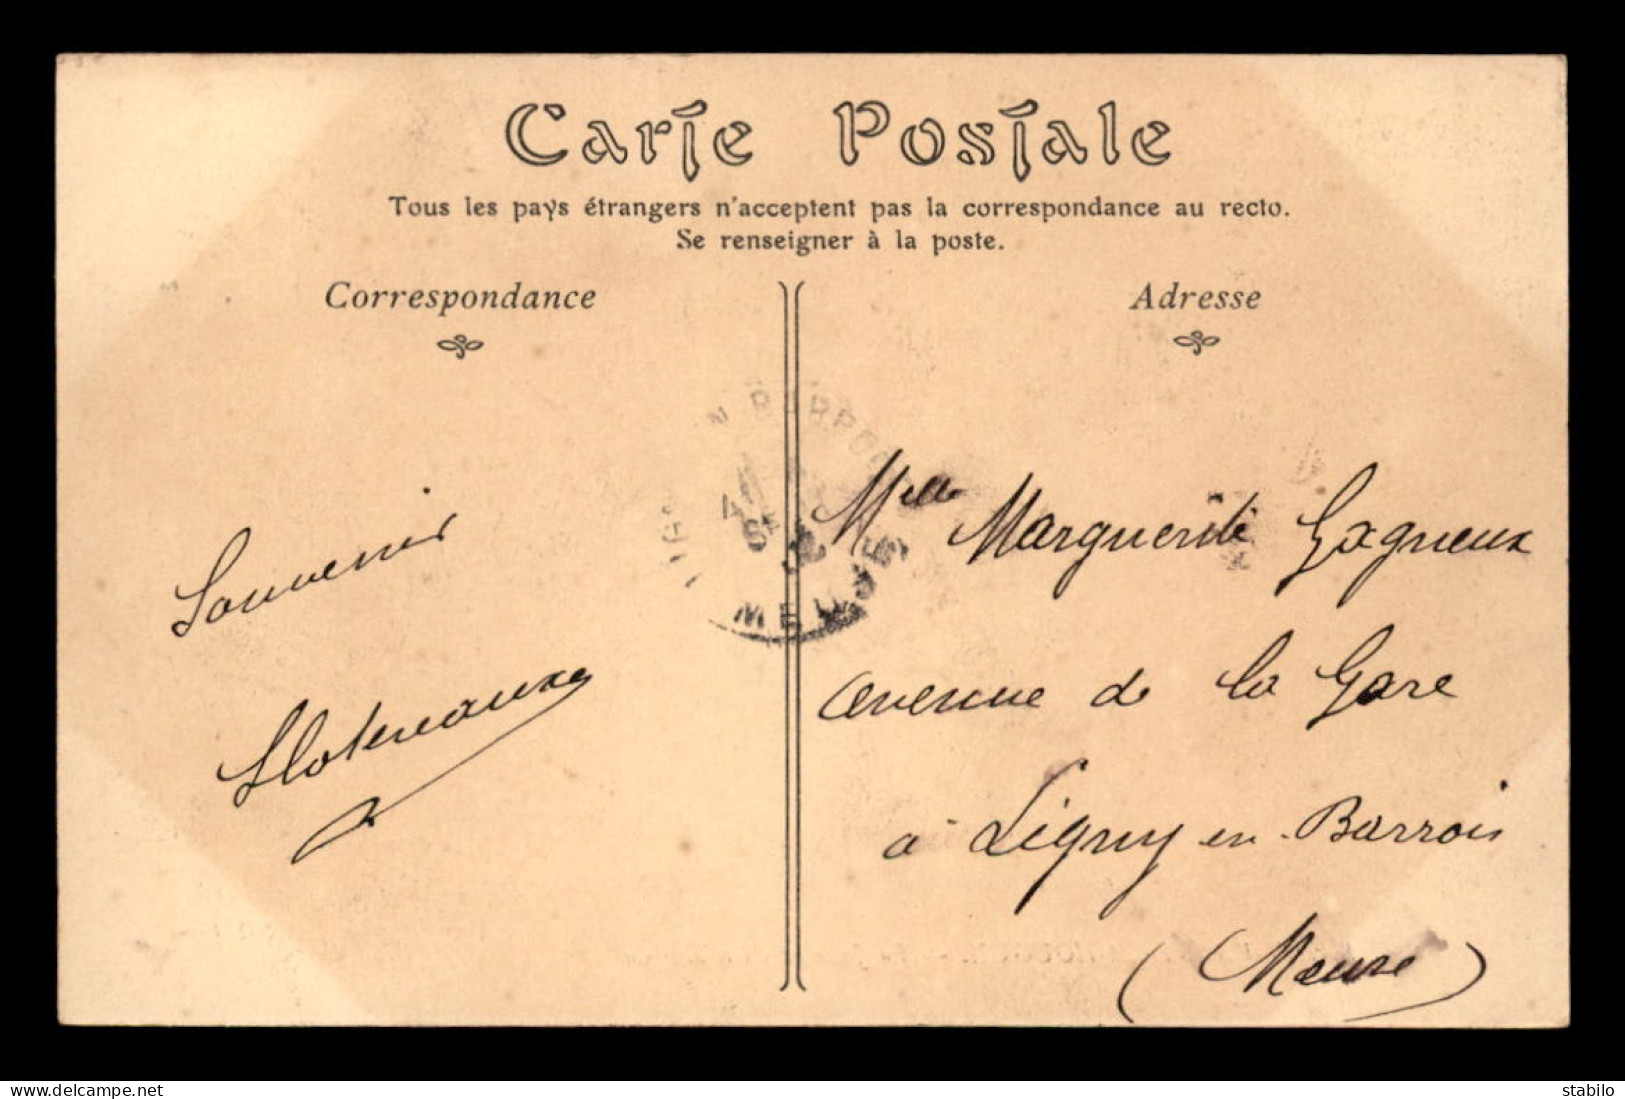 Carte Postale
Tous les pays étrangers n'acceptent pas la correspondance au recto.
Se renseigner à la poste.
Correspondance
Souvenir
Adresse
Melle Marguerite Gagneux
avenue de la Gare
à Ligny en-Barrois
(Meuse)
MEUSE
delcampe.net
stabilo